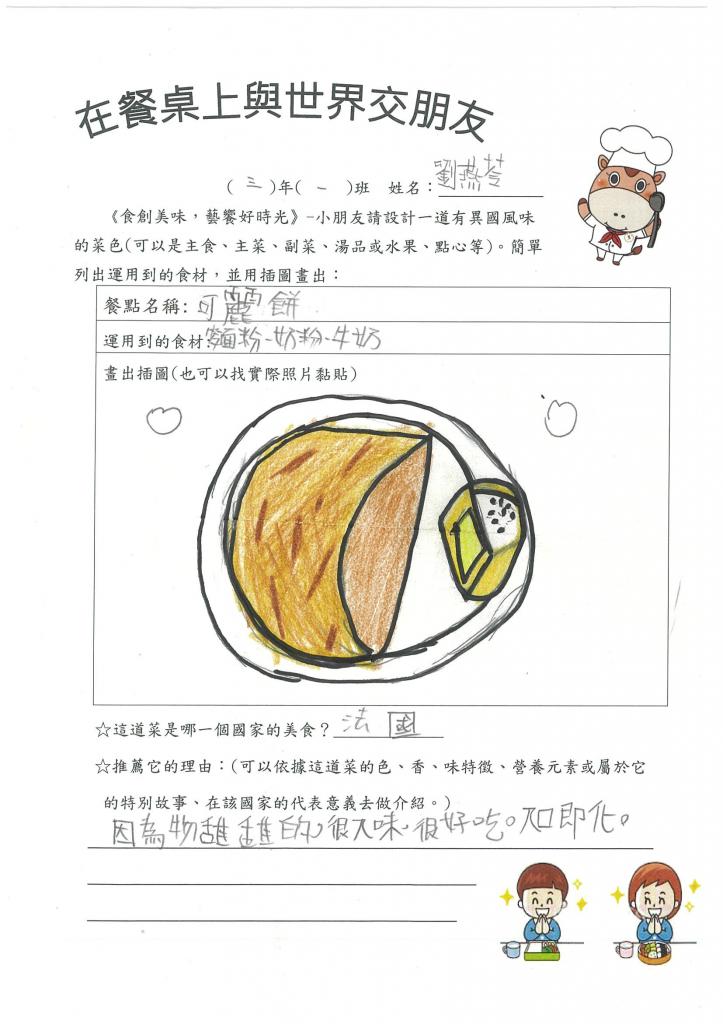 在餐桌上與世界交朋友
( 三 )年( 一 )班 姓名：劉燕苓
《食創美味，藝饗好時光》-小朋友請設計一道有異國風味
的菜色(可以是主食、主菜、副菜、湯品或水果、點心等)。簡單
列出運用到的食材，並用插圖畫出：
餐點名稱: 可麗餅
運用到的食材:麵粉、奶粉、牛奶
畫出插圖(也可以找實際照片黏貼)
☆這道菜是哪一個國家的美食？法國
☆推薦它的理由：(可以依據這道菜的色、香、味特徵、營養元素或屬於它
的特別故事、在該國家的代表意義去做介紹。)
因為物甜甜的，很入味、很好吃。入口即化。